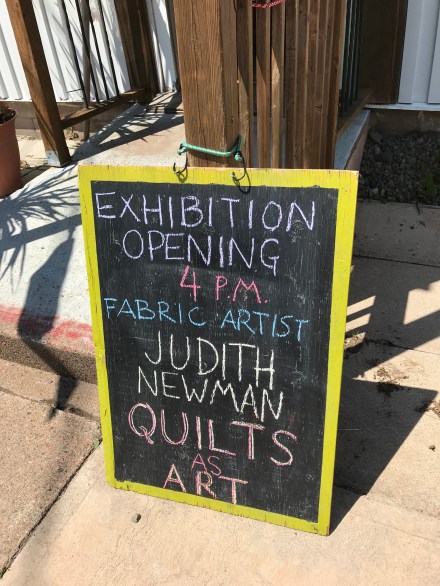 EXHIBITION
OPENING
4 P.M.
FABRIC ARTIST
JUDITH
NEWMAN
QUILTS
AS
ART